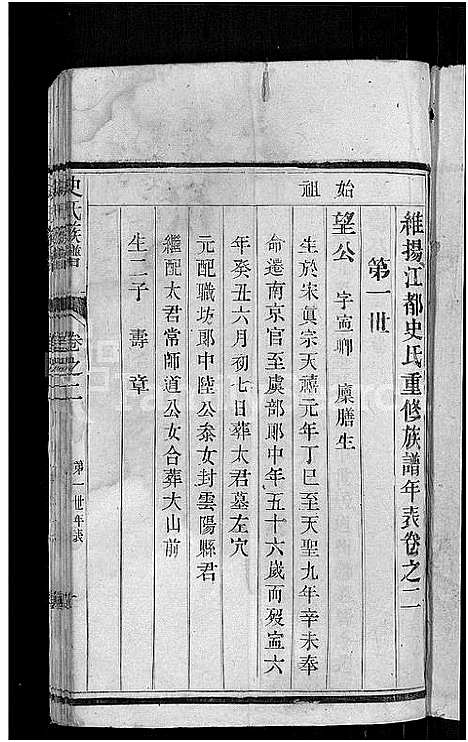 維揚江都史氏重修族譜年表卷之二
第一世
始祖
望公 字寍卿 廩膳生
生於宋眞宗天禧元年丁巳至天聖九年辛未奉
命遷南京官至虞部郞中年五十六歲而歿寍六
年癸丑六月初七日葬太君墓左穴
元配職坊郞中陸公泰女封雲陽縣君
繼配太君常師道公女合葬大山前
生二子 壽 章
史氏族譜
卷之二
第一世年表